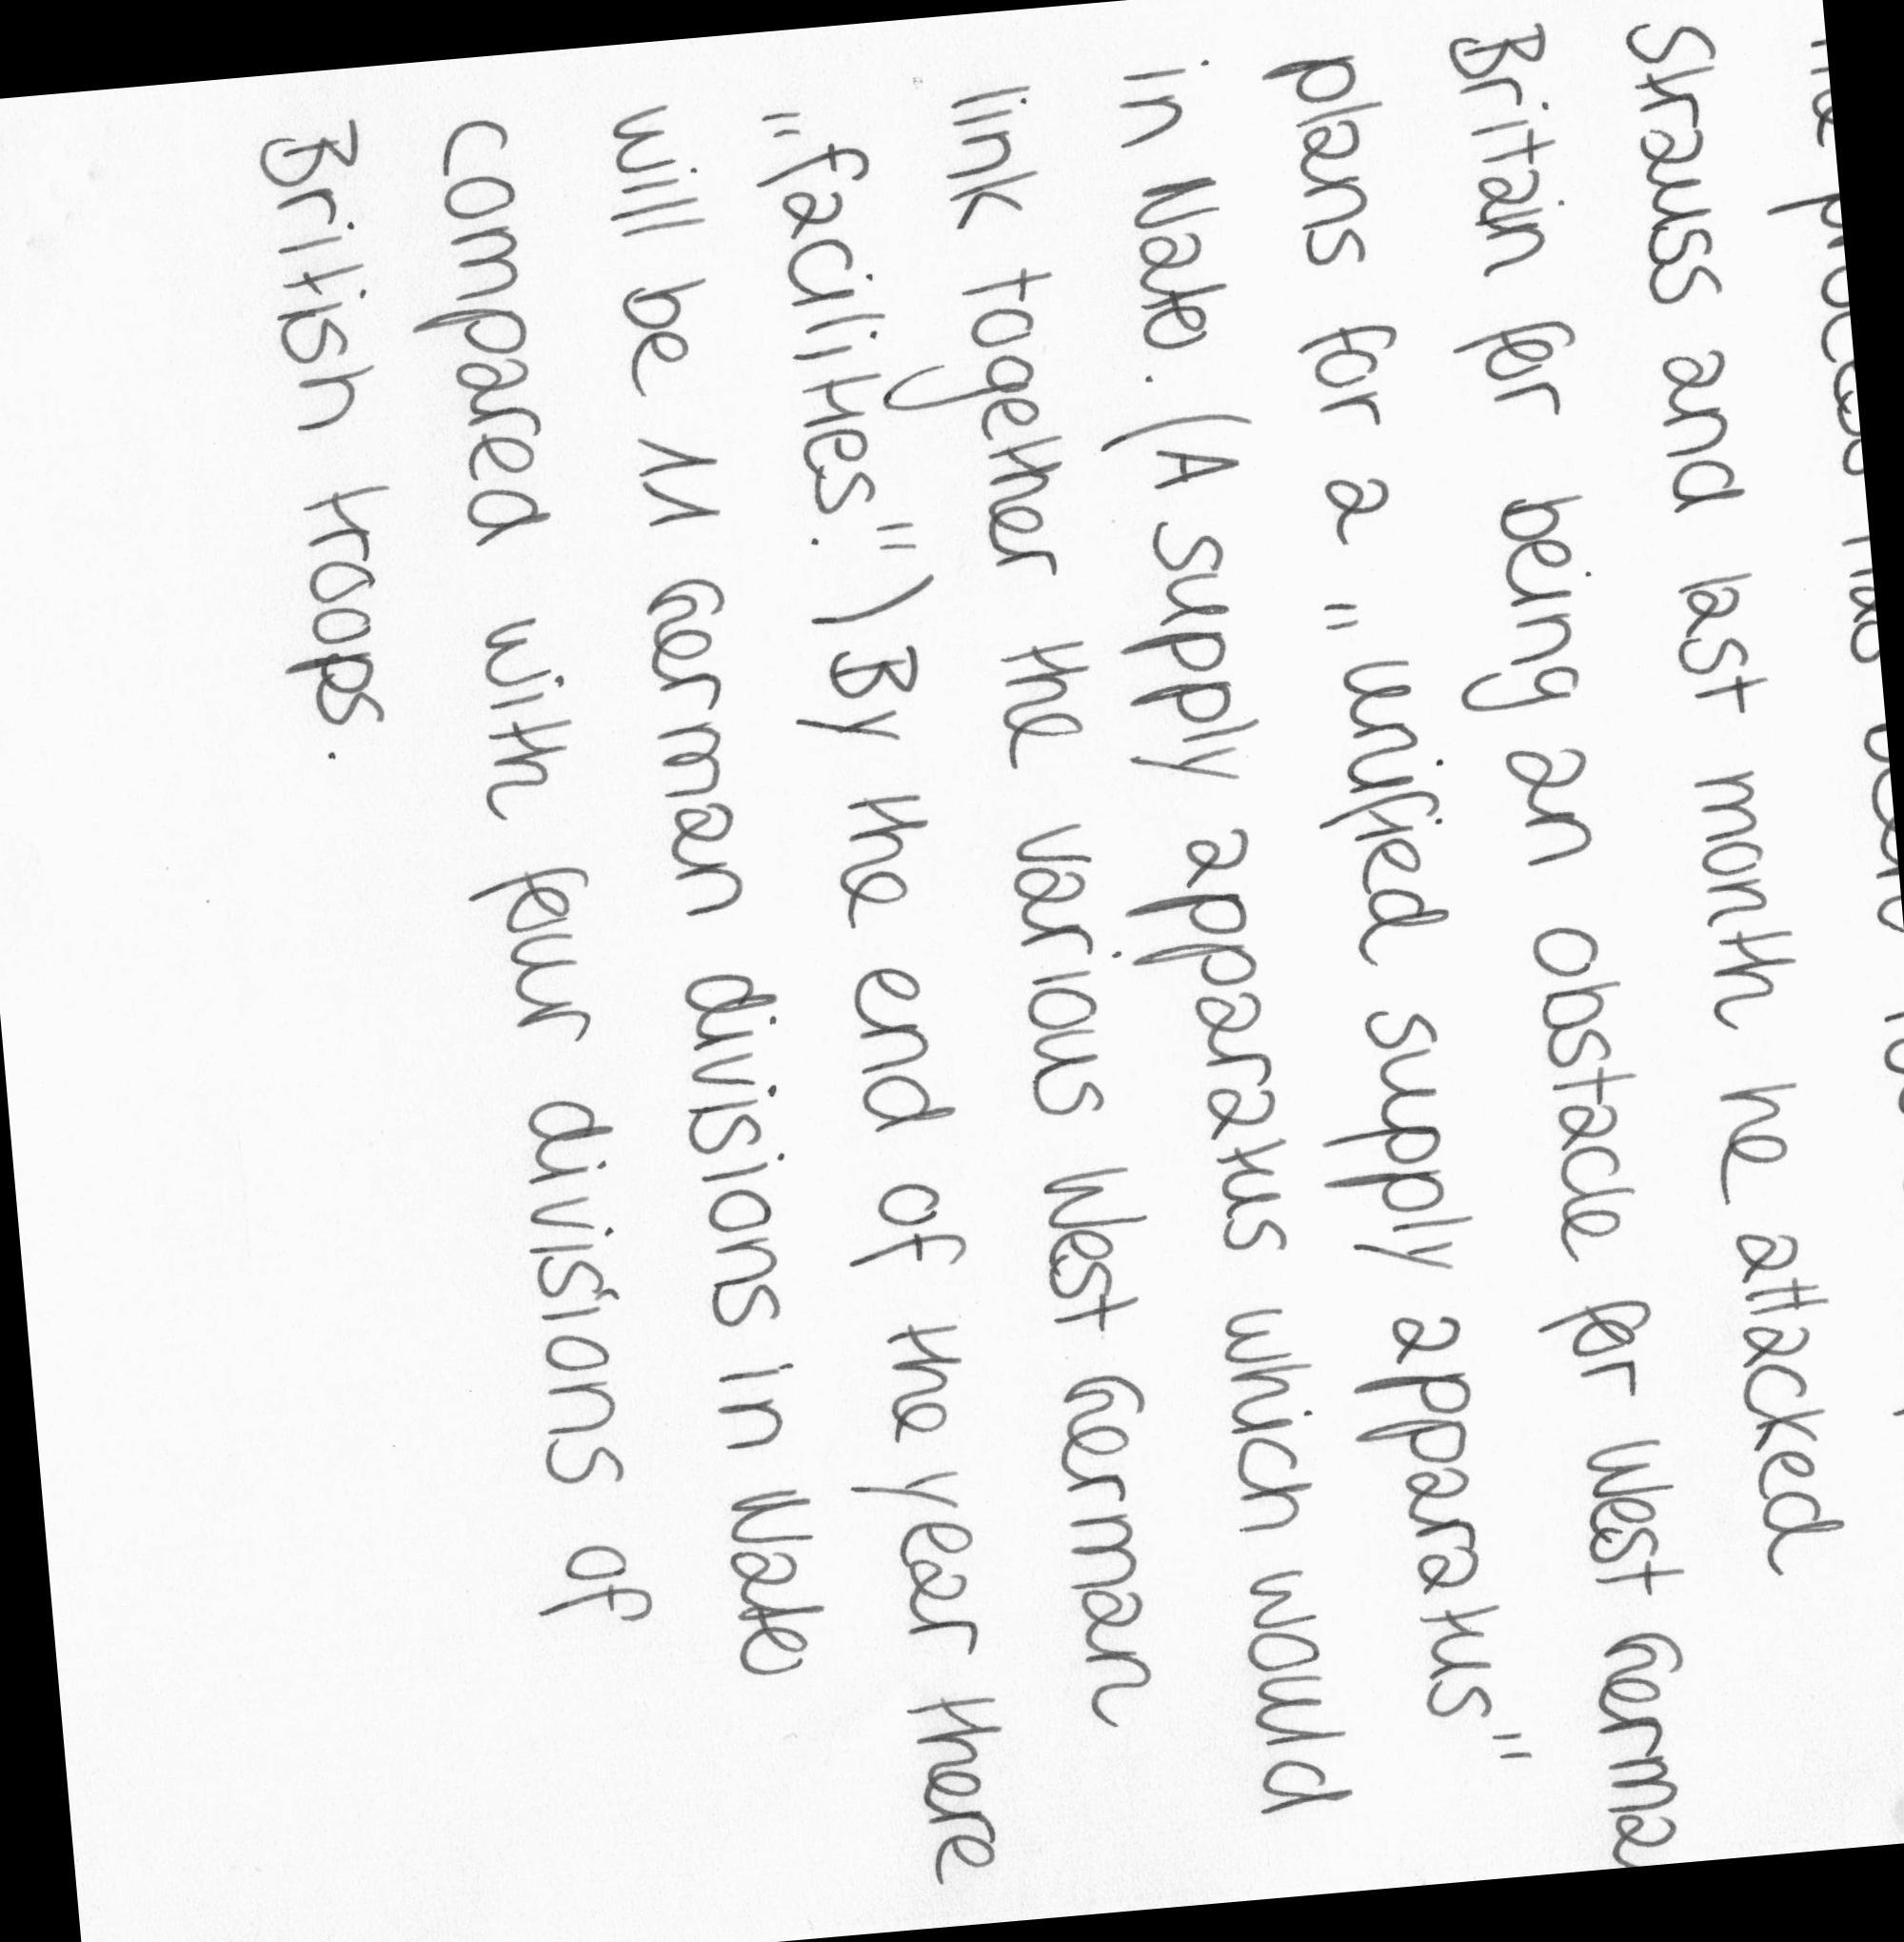 Strauss and last month he attacked
Britain for being an obstacle for West Germa
plans for a "unified supply apparatus"
in Nato. (A supply apparatus which would
link together the various West German
"facilities.") By the end of the year there
will be 11 German divisions in Nato
compared with four divisions of
British troops.